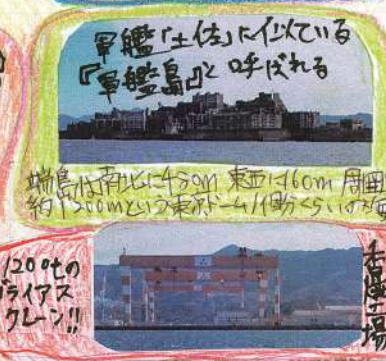 軍艦「土佐」に似ている
『軍艦島』と呼ばれる
端島は南北に480m 東西に160m 周囲
約1200mという東京ドーム
1200tの
ゴライアス
クレーン!!
香焼工場